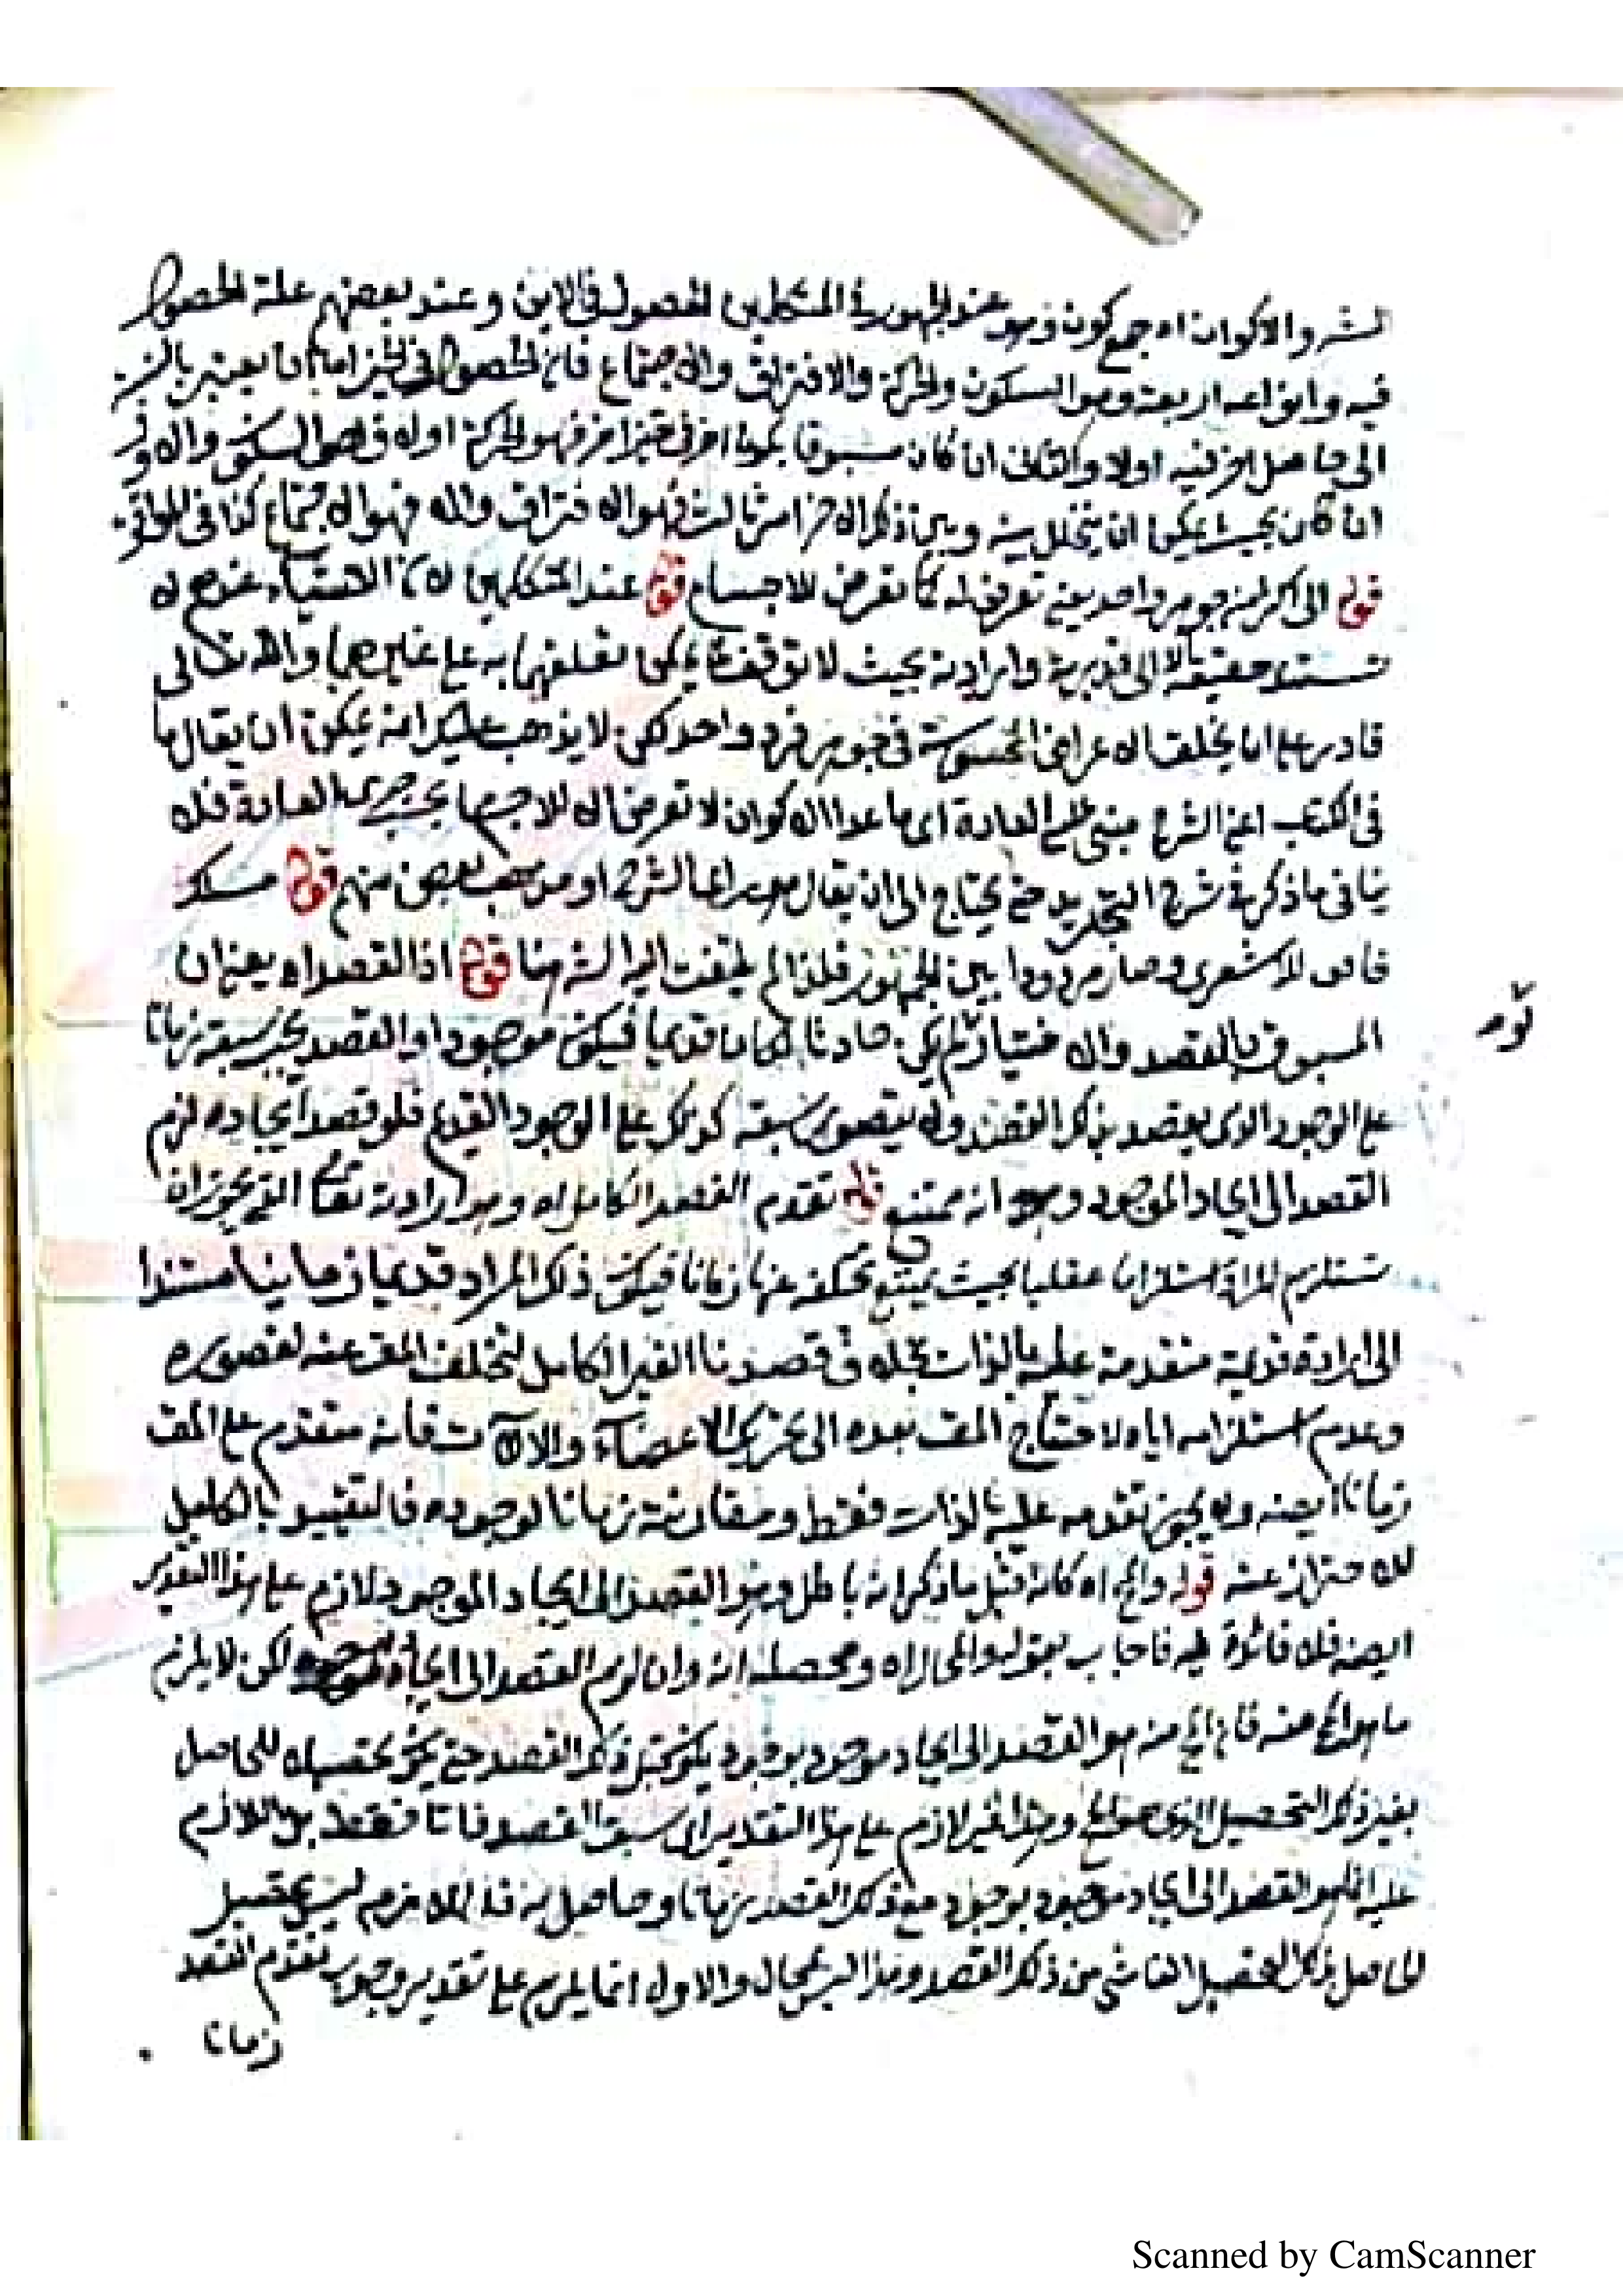 والاكوان اه جمع كون وهو عند الجمهور المتكلمين الحصول في الاين وعند بعضهم علة الحصول
فيه وانواعه اربعة وهو السكون والحركة والافتراق والاجتماع فان الحصول في الحيز اما ان يعتبر بالنسبة
الى حاصل اخر فيه اولا والثاني ان كان مسبوقا بكونه اخر في حيز اخر فهو الحركة اولا فهو السكون والاول
ان كان بحيث يمكن ان يتخلل بينه وبين ذلك الاخر امر ثالث فهو الافتراق والا فهو الاجتماع كذا في المواقف
قوله الى اكثر من جوهر واحد يعني تعرض له كما تعرض للاجسام قوله عند المتكلمين لان الاشياء عندهم له
تستند حقيقة الا الى قدرته وارادته بحيث لا توقف يمكن تعلقهما به على غيرهما والله تعالى
قادر على ان يخلق الاعراض المحسوسة في جوهر فرد واحد لكن لا يذهب عليك انه يمكن ان يقال ما
في الكتب اعني الشرح مبني على العادة اي ما عدا الاكوان لا تعرض الا للاجسام بجري العادة فلا
ينافي ما ذكر في شرح التجريد حتى يحتاج الى ان يقال الشرح او مذهب بعض منهم قوله مسلك
خاص للاشعري وصار مردودا بين الجمهور فلذا لم يلتفت اليه الشر هنا قوله اذ القصد اه يعني ان
المسبوق بالقصد والاختيار لو لم يكن حادثا لكان قديما فيكون موجودا والقصد يجب سبقه زمانا
على الوجود الذي يقصد بذلك القصد ولا يتصور سبقه كذلك على الوجود القديم فلو قصد ايجاده لزم
القصد الى ايجاد الموجود وهو انه ممتنع قوله تقدم القصد الكامل اه وهو ارادته تعالى التي يجوز ان
تستلزم المراد استلزاما عقليا بحيث يمتنع تخلفه عنها زمانا فيكون ذلك المراد قديما زمانيا مستندا
الى ارادة قديمة متقدمة عليه بالذات بخلاف قصدنا الغير الكامل لتخلف المقص عنه لقصوره
وعدم استلزامه اياه لاحتياج المقص بعده الى تحريك الاعضاء والآلات فانه متقدم على المقص
زمانا ايضه ولا يجوز تقدمه عليه بالذات فقط ومقارنته زمانا لوجوده فالتقييد بالكامل
للاحتراز عنه قوله والمح اه كانه قيل ما ذكر انه باطل وهو القصد الى ايجاد الموجود لازم على هذا التقدير
ايضه فلا فائدة فيه فاجاب بقوله والمحال اه ومحصله انه وان لزم القصد الى ايجاد الموجود لكن لا يلزم
ما هو المح منه فان المح منه هو القصد الى ايجاد موجود بوجود يكون قبل ذلك القصد حتى يكون تحصيلا للحاصل
بغير ذلك التحصيل الذي هو المح وهذا غير لازم على هذا التقدير اي سبق القصد ذاتا فقط بل اللازم
عليه انما هو القصد الى ايجاد موجود بوجود مع ذلك القصد زمانا وحاصل به فاللازم ليس تحصيل
الحاصل بذلك التحصيل الناشي من ذلك القصد وهذا ليس بمحال والاول انما يلزم على تقدير وجوب تقدم القصد
زمانا
Scanned by CamScanner